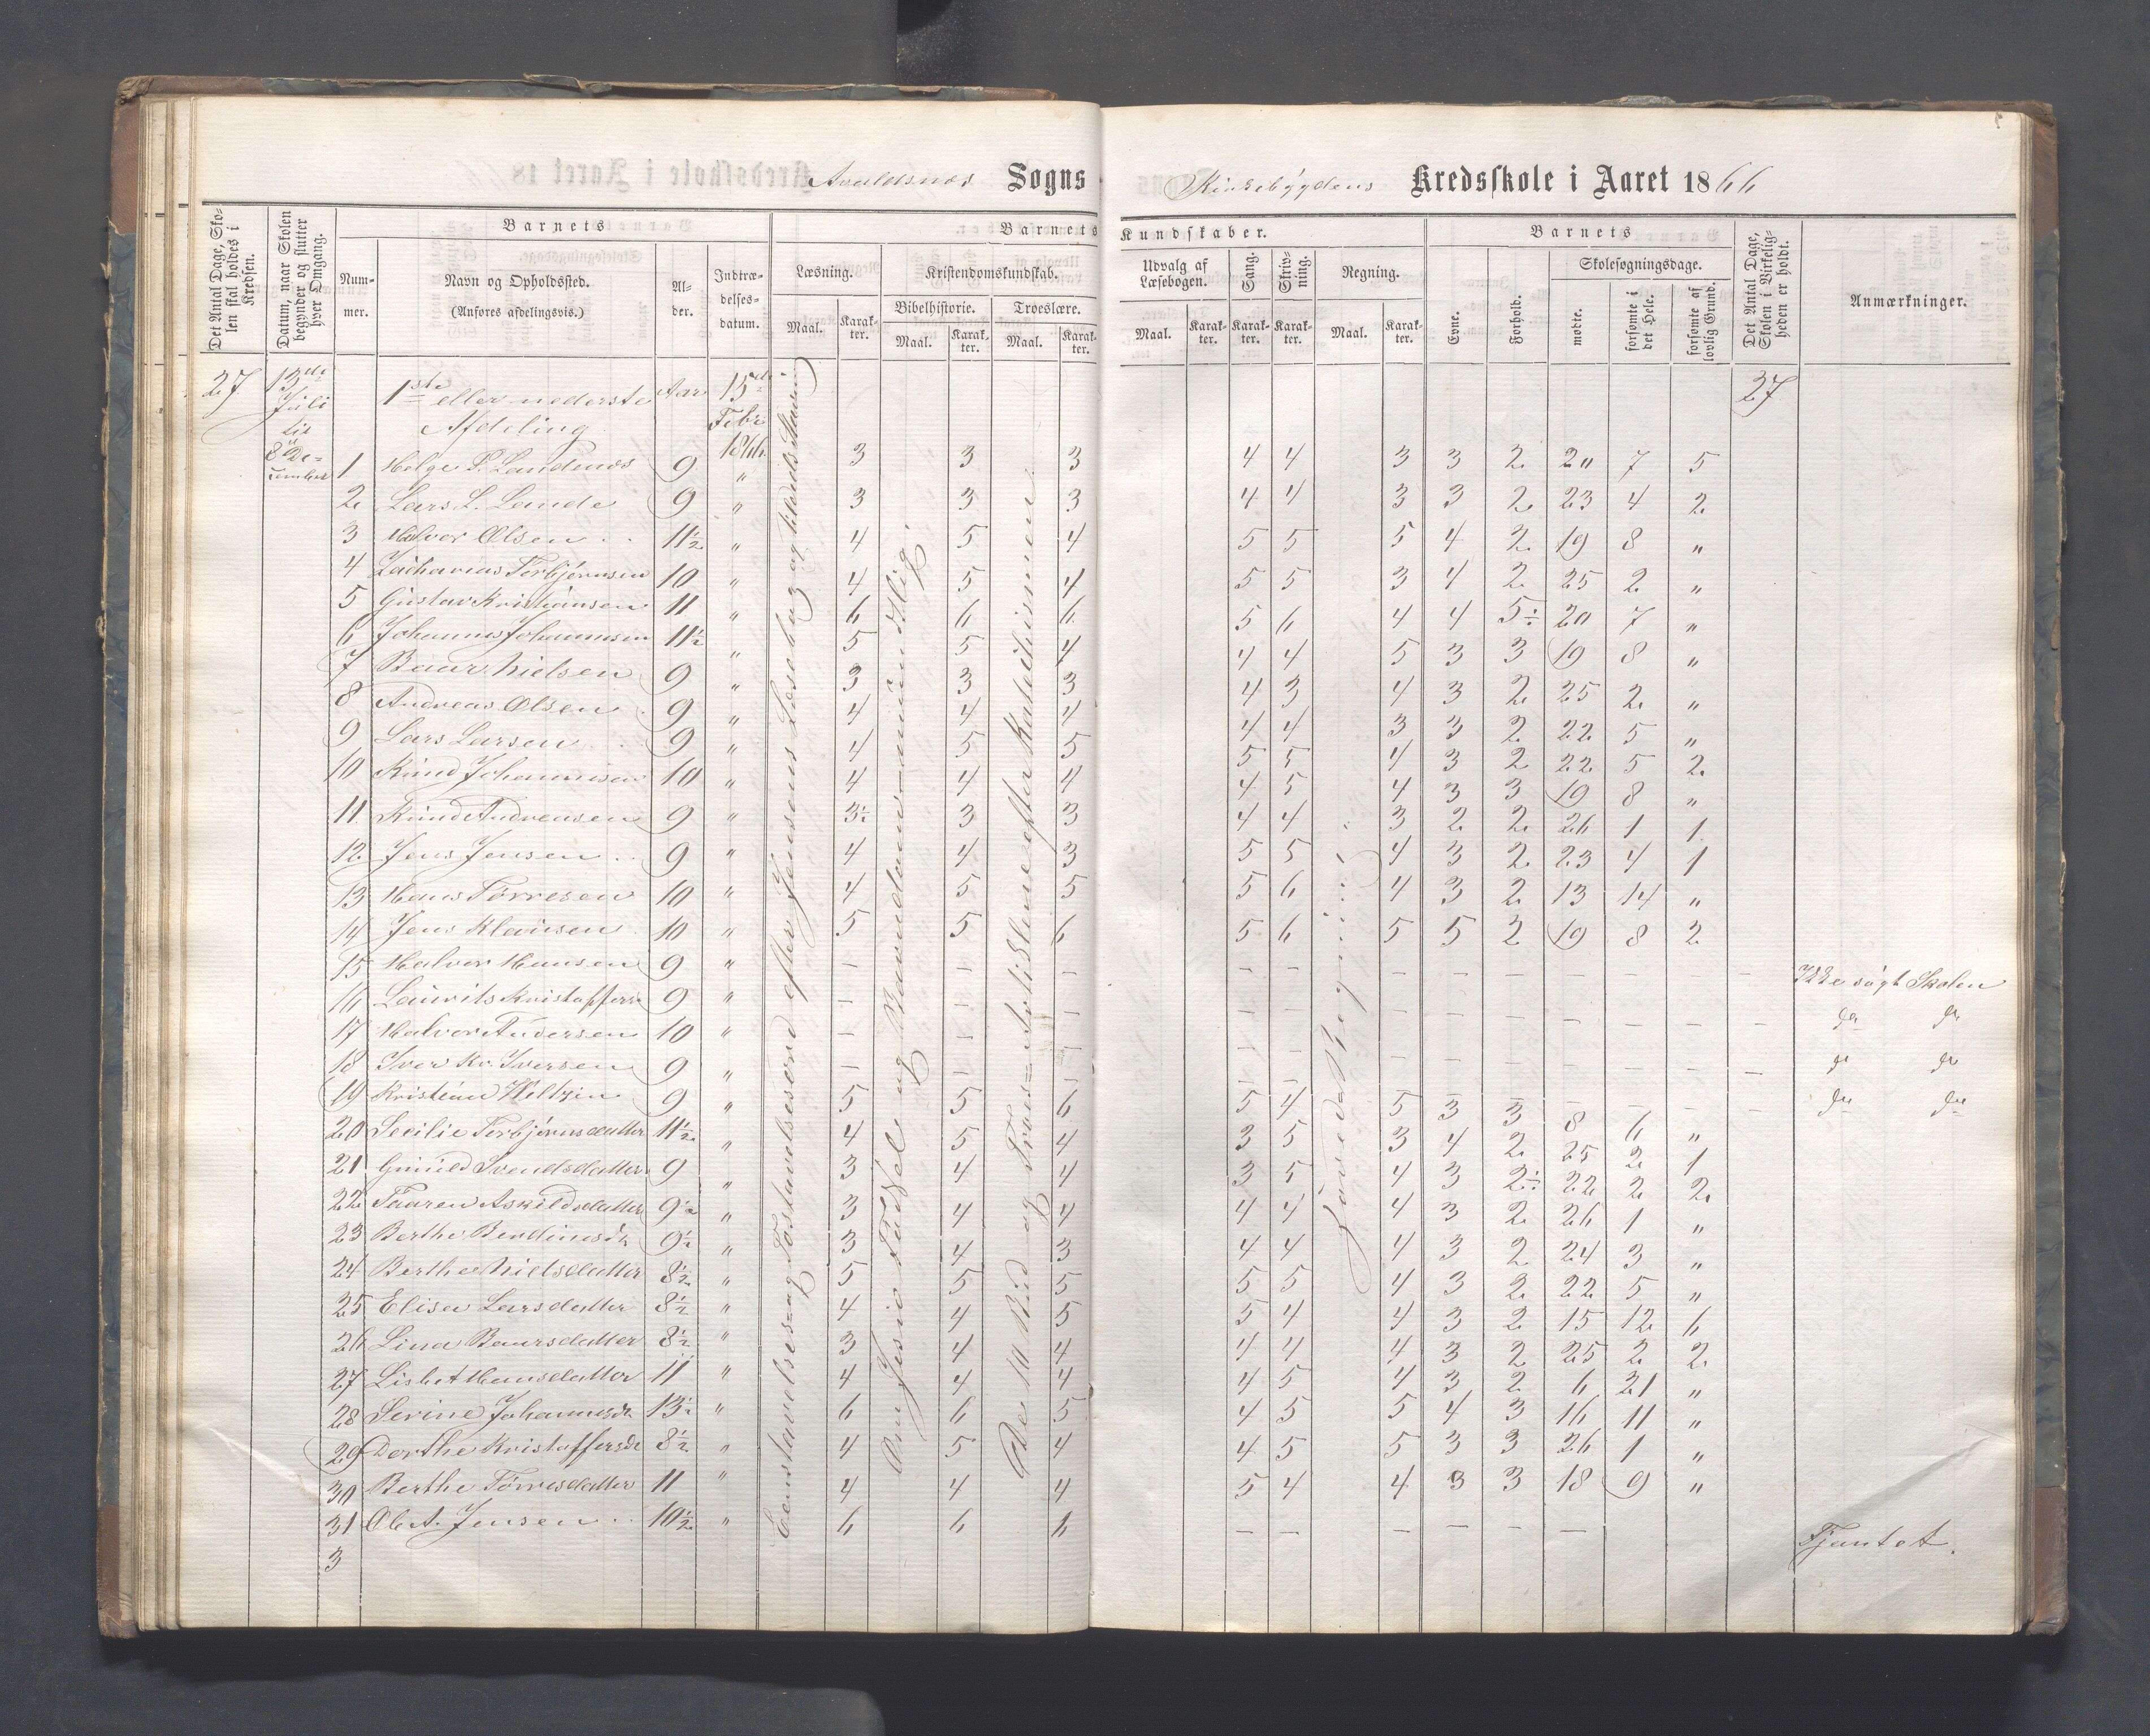 Avaldsnes Sogns Kirkebygdens Kredsskole i Aaret 1866
Det Antal Dage, Skolen skal holdes i Kredsen.
Datum, naar Skolen begynder og slutter hver Omgang.
Barnets
Barnets Kundskaber.
Barnets
Det Antal Dage, Skolen i Virkeligheden er holdt.
Anmærkninger.
Nummer.
Navn og Opholdssted.
(Anføres afdelingsvis.)
Alder.
Indtrædelsesdatum.
Læsning.
Kristendomskundskab.
Udvalg af Læsebogen.
Sang.
Skrivning.
Regning.
Evne.
Forhold.
Skolesøgningsdage.
Bibelhistorie.
Troeslære.
mødte.
forsømte i det Hele.
forsømte af lovlig Grund.
Maal. Karakter. Maal. Karakter. Maal. Karakter. Maal. Karakter. Karakter. Karakter. Maal. Karakter.
27 13de Juli til 8de December
1ste eller nederste Afdeling
Aar 15de Febr. 1866
27
1 Helge L. Landenæs 9 " 3 3 3 4 4 3 3 2 20 7 5
2 Lars L. Lande 9 " 3 3 3 4 4 3 3 2 23 4 2
3 Halvor Olsen 11½ " 4 5 4 5 5 5 4 2 19 8 "
4 Zacharias Torbjørnsen 10 " 4 5 4 5 5 3 4 2 25 2 "
5 Gustav Kristiansen 11 " 6 6 6 5 6 4 4 5÷ 20 7 "
6 Johannes Johannesen 11½ " 5 5 4 4 4 5 3 3 19 8 "
7 Baar Nielsen 9 " 3 3 3 4 3 4 3 2 25 2 "
8 Andreas Olsen 9 " 4 4 4 4 4 3 3 2 22 5 "
9 Lars Larsen 9 " 4 5 5 5 5 4 3 2 22 5 2
10 Knud Johannesen 10 " 4 4 4 4 5 4 3 3 19 8 "
11 Knud Andreasen 9 " 3÷ 3 3 4 4 3 2 2 26 1 1
12 Jens Jensen 9 " 4 4 3 5 5 4 3 2 23 4 1
13 Hans Tørresen 10 " 4 5 5 5 6 4 3 2 13 14 "
14 Jens Klausen 10 " 5 5 6 5 6 5 5 2 19 8 2
15 Halvor Hansen 9 " – – – – – – – – – – – – Ikke søgt Skolen
16 Laurits Kristoffers. 9 " – – – – – – – – – – – – do do
17 Halvor Andersen 10 " – – – – – – – – – – – – do do
18 Iver Kr. Iversen 9 " – – – – – – – – – – – – do do
19 Kristian Weltzin 9 " 5 5 6 5 4 5 3 3 8 6 "
20 Secilie Torbjørnsdatter 11½ " 4 5 4 3 5 3 4 2 25 2 1
21 Gunild Svendsdatter 9 " 3 4 4 3 5 4 3 2÷ 22 2 2
22 Taaren Askildsdatter 9½ " 3 4 4 4 4 4 3 2 26 1 "
23 Berthe Berdinesdr 9½ " 3 4 3 4 4 4 3 2 24 3 "
24 Berthe Nielsdatter 8½ " 5 5 5 5 5 4 3 2 22 5 "
25 Elisa Larsdatter 8½ " 4 4 5 5 4 4 3 2 15 12 6
26 Lina Baarsdatter 8½ " 3 4 4 4 4 4 3 2 25 2 2
27 Lisbet Hansdatter 11 " 4 4 4 4 5 4 3 2 6 21 "
28 Serine Johannesdr 13½ " 6 6 5 4 5 5 4 3 16 11 "
29 Dorthe Kristoffersdr 8½ " 4 5 4 4 5 5 3 3 26 1 "
30 Berthe Tørresdatter 11 " 4 4 4 5 4 4 3 3 18 9 "
31 Ole A. Jensen 10½ " 6 6 6 – – – – – – Tjentet.
3
Eenstavelses- og Tostavelsesord efter Jensens Læsebog og
Om Jesio Fødsel og Barndom – mundtlig.
De 10 Bud og Troes-Artiklene efter Katekismen.